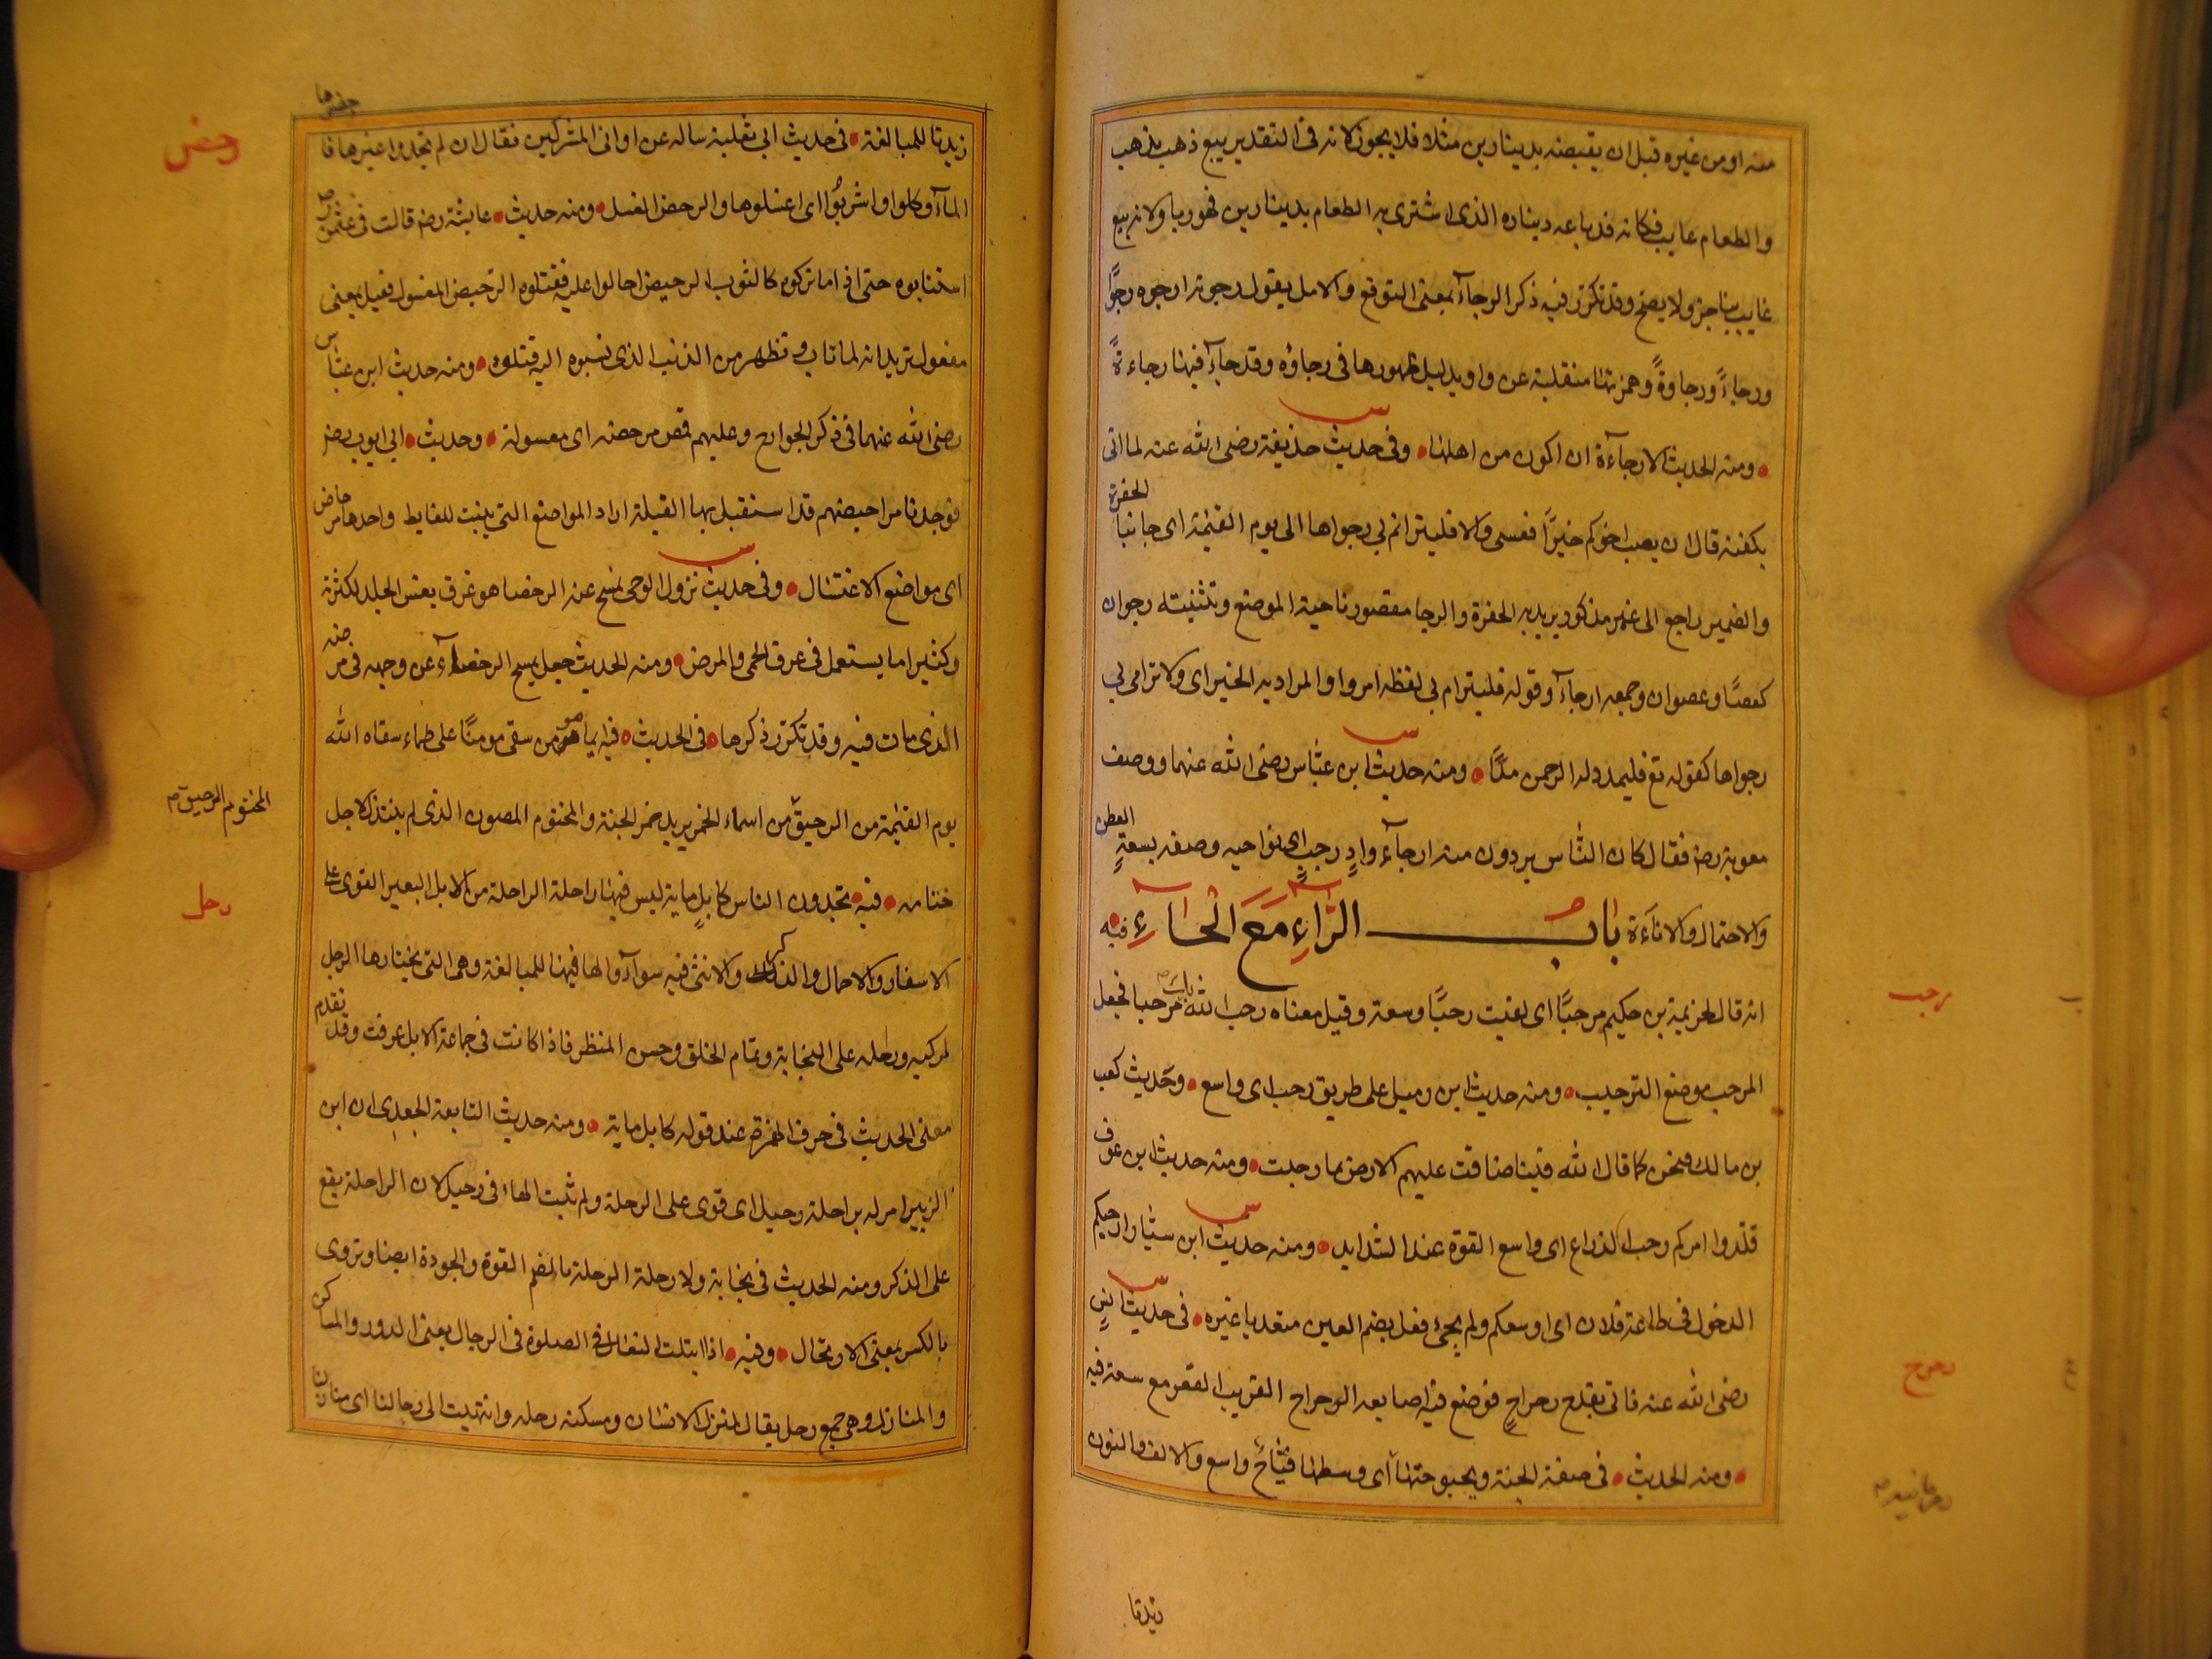 منه او من غيره قبل ان يقبضه بدينارين مثلا فلا يجوز لانه فى التقدير بيع ذهب بذهب
والطعام غايب فكانه قد باعه ديناره الذى اشترى به الطعام بدينارين فهو ربا ولانه بيع
غايب بناجز ولا يصح وقد تكرر فيه ذكر الرجآء بمعنى التوقع والامل يقول رجوته ارجوه رجوًّا
ورجاءً ورجاوةً وهمزتها منقلبة عن واو بدليل ظهورها فى رجاوه وقد جآء فيها رجاءةً
ومنه الحديث الا رجآءة ان اكون من اهلها وفى حديث حذيفة رضى الله عنه لما اتى
بكفنه قال ان يصب اخوكم خيرًا فعسى والا فليترام بى رجواها الى يوم القيمة اى جانبا الحفرة
والضمير راجع الى غير مذكور يريد به الحفرة والرجا مقصور ناحية الموضع وتثنيته رجوان
كعصًا وعصوان وجمعه ارجآء وقوله فليترام بى لفظه امر والمراد به الخبر اى والا ترامى بى
رجواها كقوله تع فليمدد له الرحمن مدًّا ومنه حديث ابن عبّاس رضى الله عنهما ووصف
معوية رضه فقال كان النّاس يردون منه ارجآء وادٍ رحبٍ اى نواحيه وصفه بسعةٍ العطن
والاحتمال والاناءة باب الرّاءِ مَعَ الْحَاءِ فيه
انه قال لخزيمة بن حكيم مرحبًا اى لقيت رحبًا وسعة وقيل معناه رحب الله بك مرحبا فجعل
المرحب موضع الترحيب ومنه حديث ابن زميل على طريق رحب اى واسع وحديث كعب
بن مالك ونحن كما قال الله فينا ضاقت عليهم الارض بما رحبت ومنه حديث ابن عوف
قلدوا امركم رحب الذراع اى واسع القوة عند الشدايد ومنه حديث ابن سيّار ارحبكم
الدخول فى طاعة فلان اى اوسعكم ولم يجئ فعل بضم العين متعديا غيره فى حديث انس
رضى الله عنه فاتى بقدح رحراح فوضع فيه اصابعه الرحراح القريب القعر مع سعة فيه
ومنه الحديث فى صفة الجنة وبحبوحتها اى وسطها فيّاح واسع والالف والنون
رحب
رحرح
رحرحانية
زيدتا
زيدتا للمبالغة فى حديث ابى ثعلبة ساله عن اوانى المشركين فقال ان لم تجدوا غيرها فارحضوها
المآء وكلوا واشربُوا اى اغسلوها والرحض الغسل ومنه حديث عايشة رضه قالت فى عثمن رض
استتابوه حتى اذا ما تركوه كالثوب الرحيض احالوا عليه فقتلوه الرّحيض المغسول فعيل بمعنى
مفعول تريد انه لما تاب وتطهر من الذنب الذى نسبوه اليه قتلوه ومنه حديث ابن عبّاس
رضى الله عنهما فى ذكر الخوارج وعليهم قمص مرحضة اى مغسولة وحديث ابى ايوب رضه
فوجدنا مراحيضهم قد استقبل بها القبلة اراد المواضع التى بنيت للغايط واحدها مرحاض
اى مواضع الاغتسال وفى حديث نزول الوحى فمسح عنه الرحضا هو عرق يغسل الجلد لكثرته
وكثيرا ما يستعمل فى عرق الحمى والمرض ومنه الحديث جعل يمسح الرحضآء عن وجهه فى مرضه
الذى مات فيه وقد تكرر ذكرها فى الحديث فيه ايما مومن سقى مومنًا على ظماء سقاه الله
يوم القيمة من الرحيق من اسماء الخمر يريد خمر الجنة والمختوم المصون الذى لم يبتذل لاجل
ختامه فيه تجدون الناس كابلٍ ماية ليس فيها راحلة الراحلة من الابل البعير القوى على
الاسفار والاحمال والذكر والانثى فيه سوآء والها فيها للمبالغة وهى التى يختارها الرجل
لمركبه ورحله على النجابة وتمام الخلق وحسن المنظر فاذا كانت فى جماعة الابل عرفت وقد تقدم
معنى الحديث فى حرف الهمزة عند قوله كابل ماية ومنه حديث النابغة الجعدى ان ابن
الزبير امر له براحلة رحيل اى قوى على الرحلة ولم تثبت الهاء فى رحيل لان الراحلة يقع
على الذكر ومنه الحديث فى نجابة ولا رحلة الرحلة بالضم القوة والجودة ايضا وتروى
بالكسر بمعنى الارتحال وفيه اذا ابتلت النعال فالصلوة فى الرحال يعنى الدور والمساكن
والمنازل وهى جمع رحل يقال لمنزل الانسان ومسكنه رحله وانتهيت الى رحالنا اى منازلنا
رحض
المختوم الرحيق
رحل